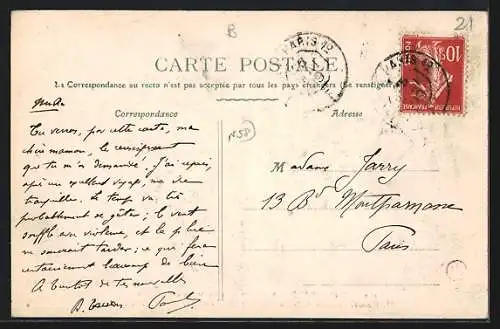 B
21
PARIS 12
PARIS 12
10c
RÉPUBLIQUE FRANÇAISE
CARTE POSTALE
La Correspondance au recto n'est pas acceptée par tous les pays étrangers (Se renseigner
Correspondance
Adresse
N58
Tu verras, par cette carte, ma
chère maman, le renseignement
que tu m'as demandé. J'ai
après un excellent voyage, ma vie
tranquille. Le temps va, très
probablement se gâter; le vent
souffle avec violence, et la pluie
ne saurait tarder; ce qui fera
certainement beaucoup de bien
A bientôt de tes nouvelles
Paul
Madame Jarry
13 Bd Montparnasse
Paris